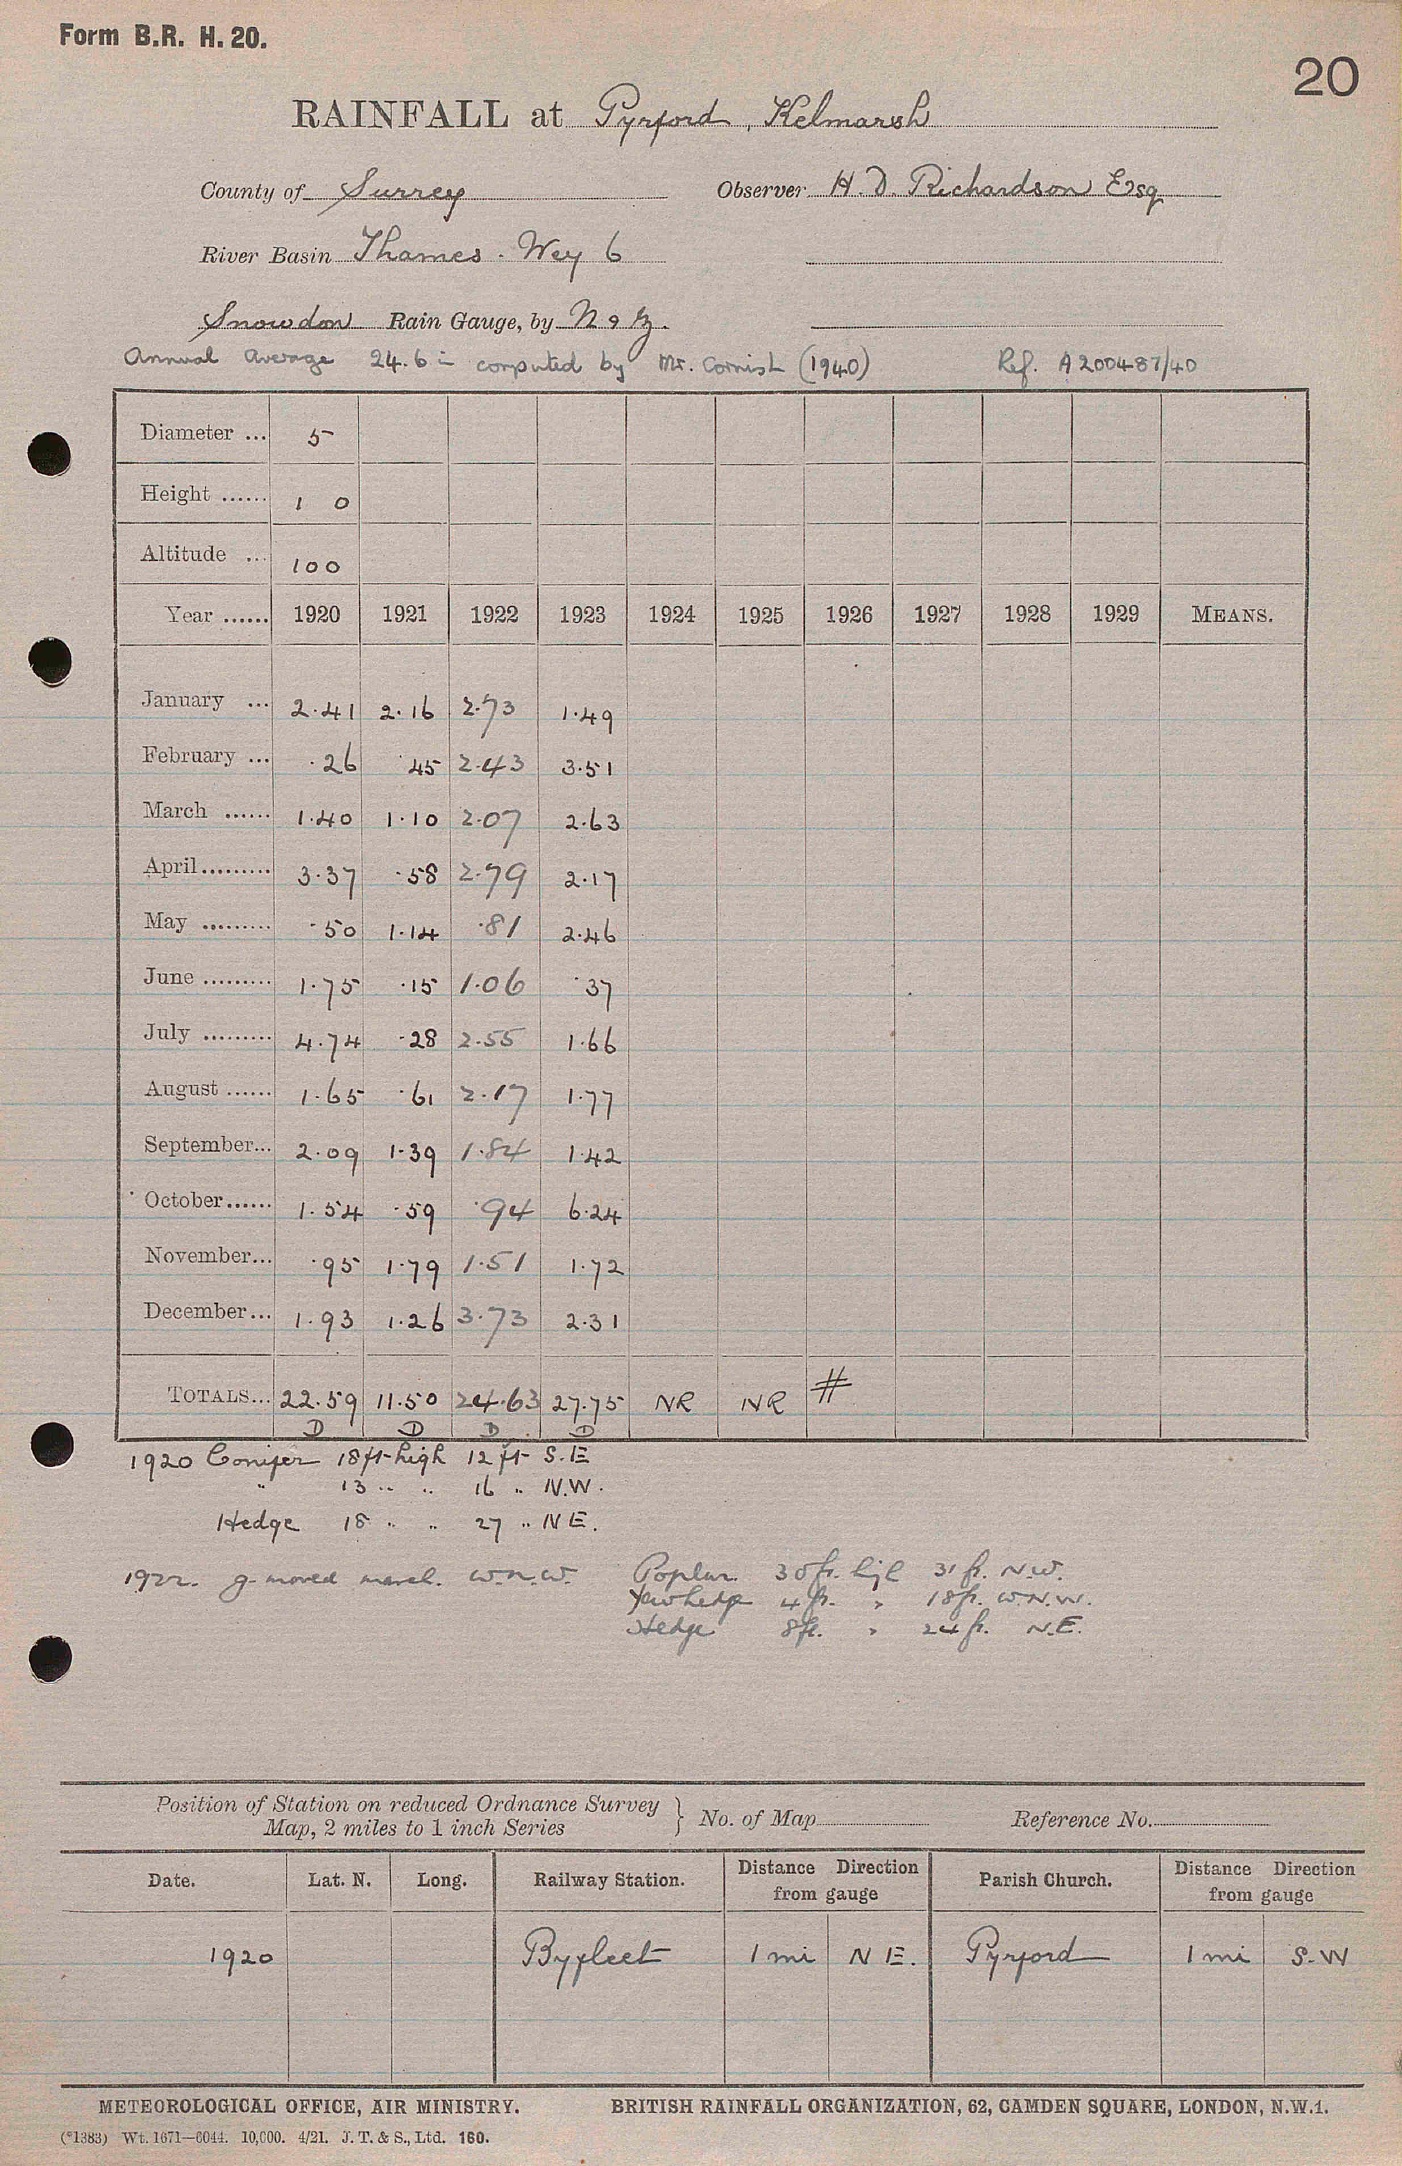 Form B.R. H. 20.
20
RAINFALL at Pyrford, Kelmarsh
County of Surrey Observer H. D. Richardson Esq
River Basin Thames. Wey 6
Snowdon Rain Gauge, by N & Z.
Annual Average 24.6 in computed by Mr. Cornish (1940) Ref. A200487/40
Diameter ... 5
Height ...... 1 0
Altitude ... 100
Year ...... 1920 1921 1922 1923 1924 1925 1926 1927 1928 1929 MEANS.
January ... 2.41 2.16 2.73 1.49
February ... .26 .45 2.43 3.51
March ...... 1.40 1.10 2.07 2.63
April......... 3.37 .58 2.79 2.17
May ......... .50 1.14 .81 2.46
June ......... 1.75 .15 1.06 .37
July ......... 4.74 .28 2.55 1.66
August ...... 1.65 .61 2.17 1.77
September... 2.09 1.39 1.84 1.42
October...... 1.54 .59 .94 6.24
November... .95 1.79 1.51 1.72
December... 1.93 1.26 3.73 2.31
TOTALS... 22.59 11.50 24.63 27.75 NR NR #
D D D D
1920 Conifer 18 ft high 12 ft S.E
" 13 " " 16 " N.W.
Hedge 18 " " 27 " N E.
1922. g. moved march. W.N.W. Poplar 30 ft. high 31 ft. N.W.
Yew hedge 4 ft. " 18 ft. W.N.W.
Hedge 8 ft. " 24 ft. N.E.
Position of Station on reduced Ordnance Survey
Map, 2 miles to 1 inch Series } No. of Map Reference No.
Date. Lat. N. Long. Railway Station. Distance Direction from gauge Parish Church. Distance Direction from gauge
1920 Byfleet 1 mi N E. Pyrford 1 mi S.W
METEOROLOGICAL OFFICE, AIR MINISTRY. BRITISH RAINFALL ORGANIZATION, 62, CAMDEN SQUARE, LONDON, N.W.1.
(*1383) Wt. 1671—6044. 10,000. 4/21. J. T. & S., Ltd. 160.